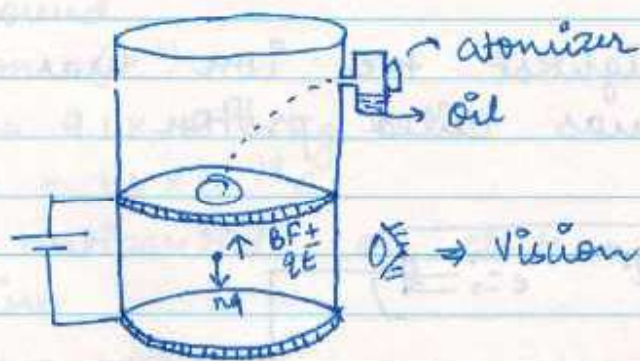 atomizer
oil
BF +
qE
mg
⇒ Vision